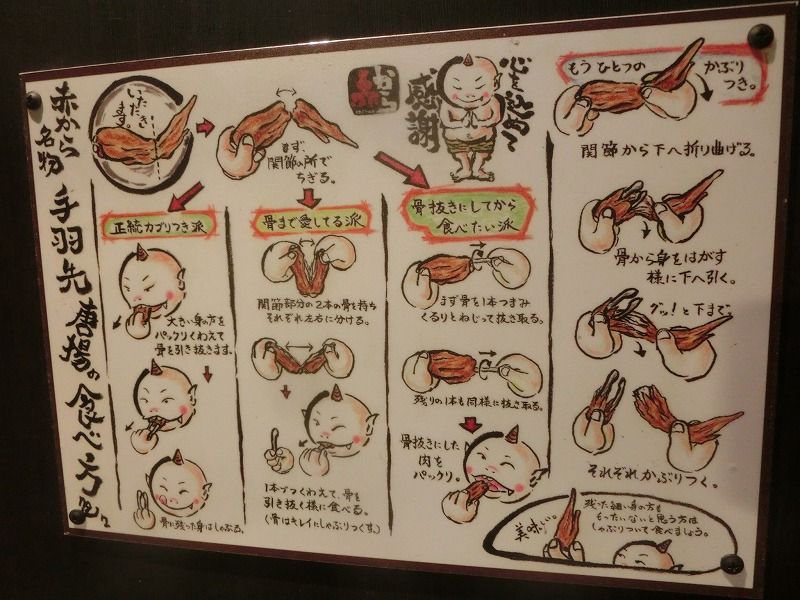 赤から
名物
手羽先唐揚の食べ方
いただき
ます。
まず
関節の所で
ちぎる。
赤から
心を込めて
感謝
正統カブリつき派
大きい身の方を
パックリくわえて
骨を引き抜きます。
骨に残った身はしゃぶる。
骨まで愛してる派
関節部分の2本の骨を持ち
それぞれ左右に分ける。
1本づつくわえて、骨を
引き抜く様に食べる。
(骨はキレイにしゃぶりつくす。)
骨抜きにしてから
食べたい派
まず骨を1本つまみ
くるりとねじって抜き取る。
残りの1本も同様に抜き取る。
骨抜きにした
肉を
パックリ。
もうひとつの かぶり
つき。
関節から下へ折り曲げる。
骨から身をはがす
様に下へ引く。
グッ!と下まで。
それぞれかぶりつく。
美味い。
残った細い身の方も
もったいないと思う方は
しゃぶりついて食べましょう。